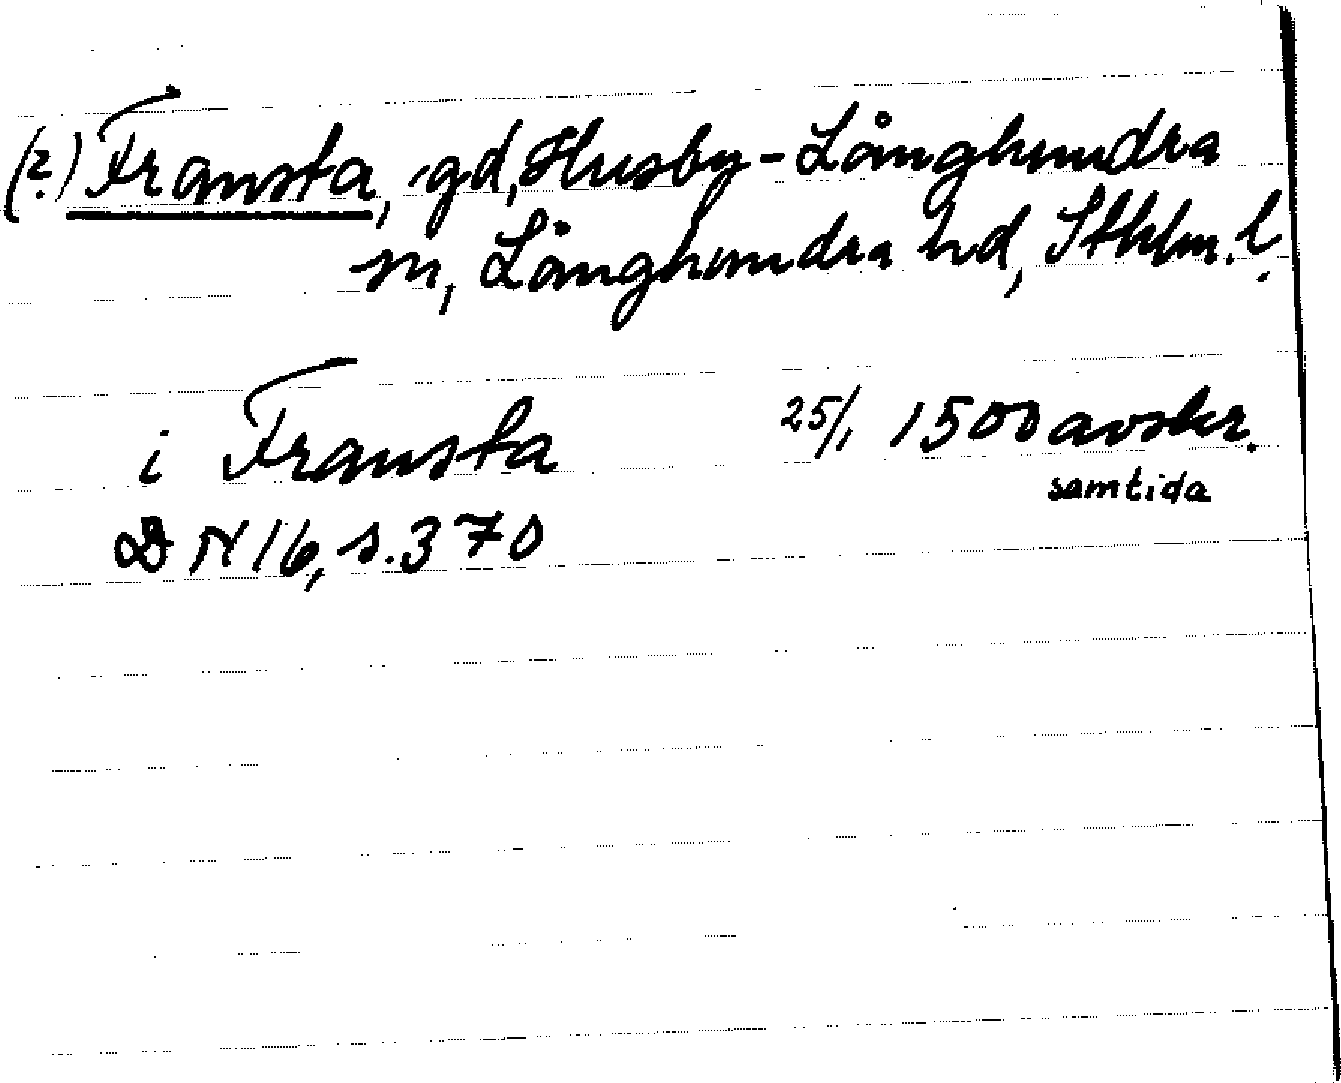 (?) Fransta, gd, Husby-Långhundra
sn, Långhundra hd, Sthlm. l.
i Fransta 25/1 1500 avskr.
samtida
DN 16, s. 370